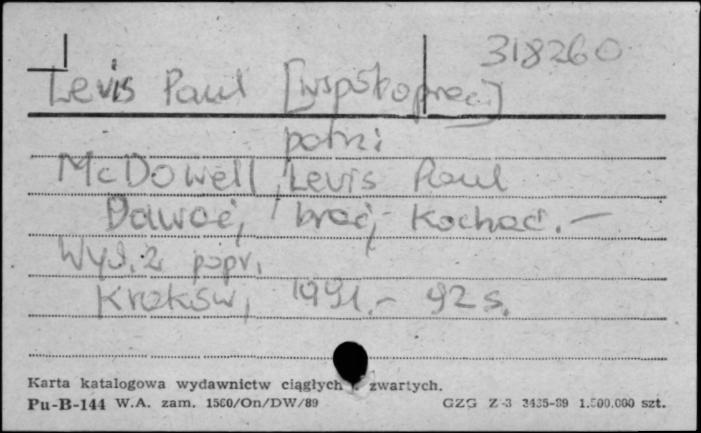 318260
Levis Paul [współoprac.]
patrz:
McDowell, Levis Paul
Dawać, brać, kochać. —
Wyd. 2 popr.
Kraków, 1991.- 92 s.
Karta katalogowa wydawnictw ciągłych i zwartych.
Pu-B-144 W.A. zam. 1560/On/DW/89 GZG Z-3 3435-89 1.500.000 szt.